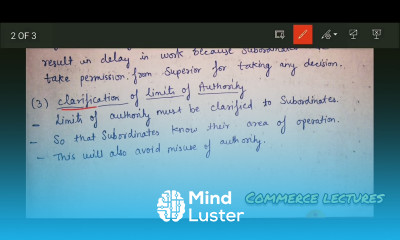 2 OF 3
result in delay in work because Subordinates
take permission from Superior for taking any decision.
(3) Clarification of Limits of Authority
- Limits of authority must be clarified to Subordinates.
- So that Subordinates know their area of operation.
- This will also avoid misuse of authority.
Mind
Luster
COMMERCE LECTURES